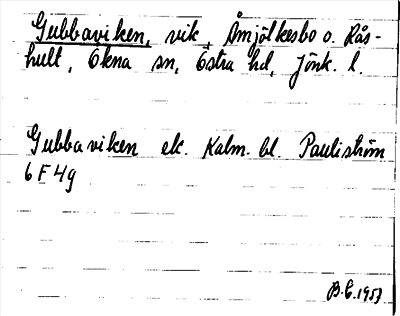 Gubbaviken, vik, Åmjölkesbo o. Rås-
hult, Ökna sn, Östra hd, Jönk. l.
Gubbaviken ek. Kalm. bl. Pauliström
6 F 4g
B.E. 1953